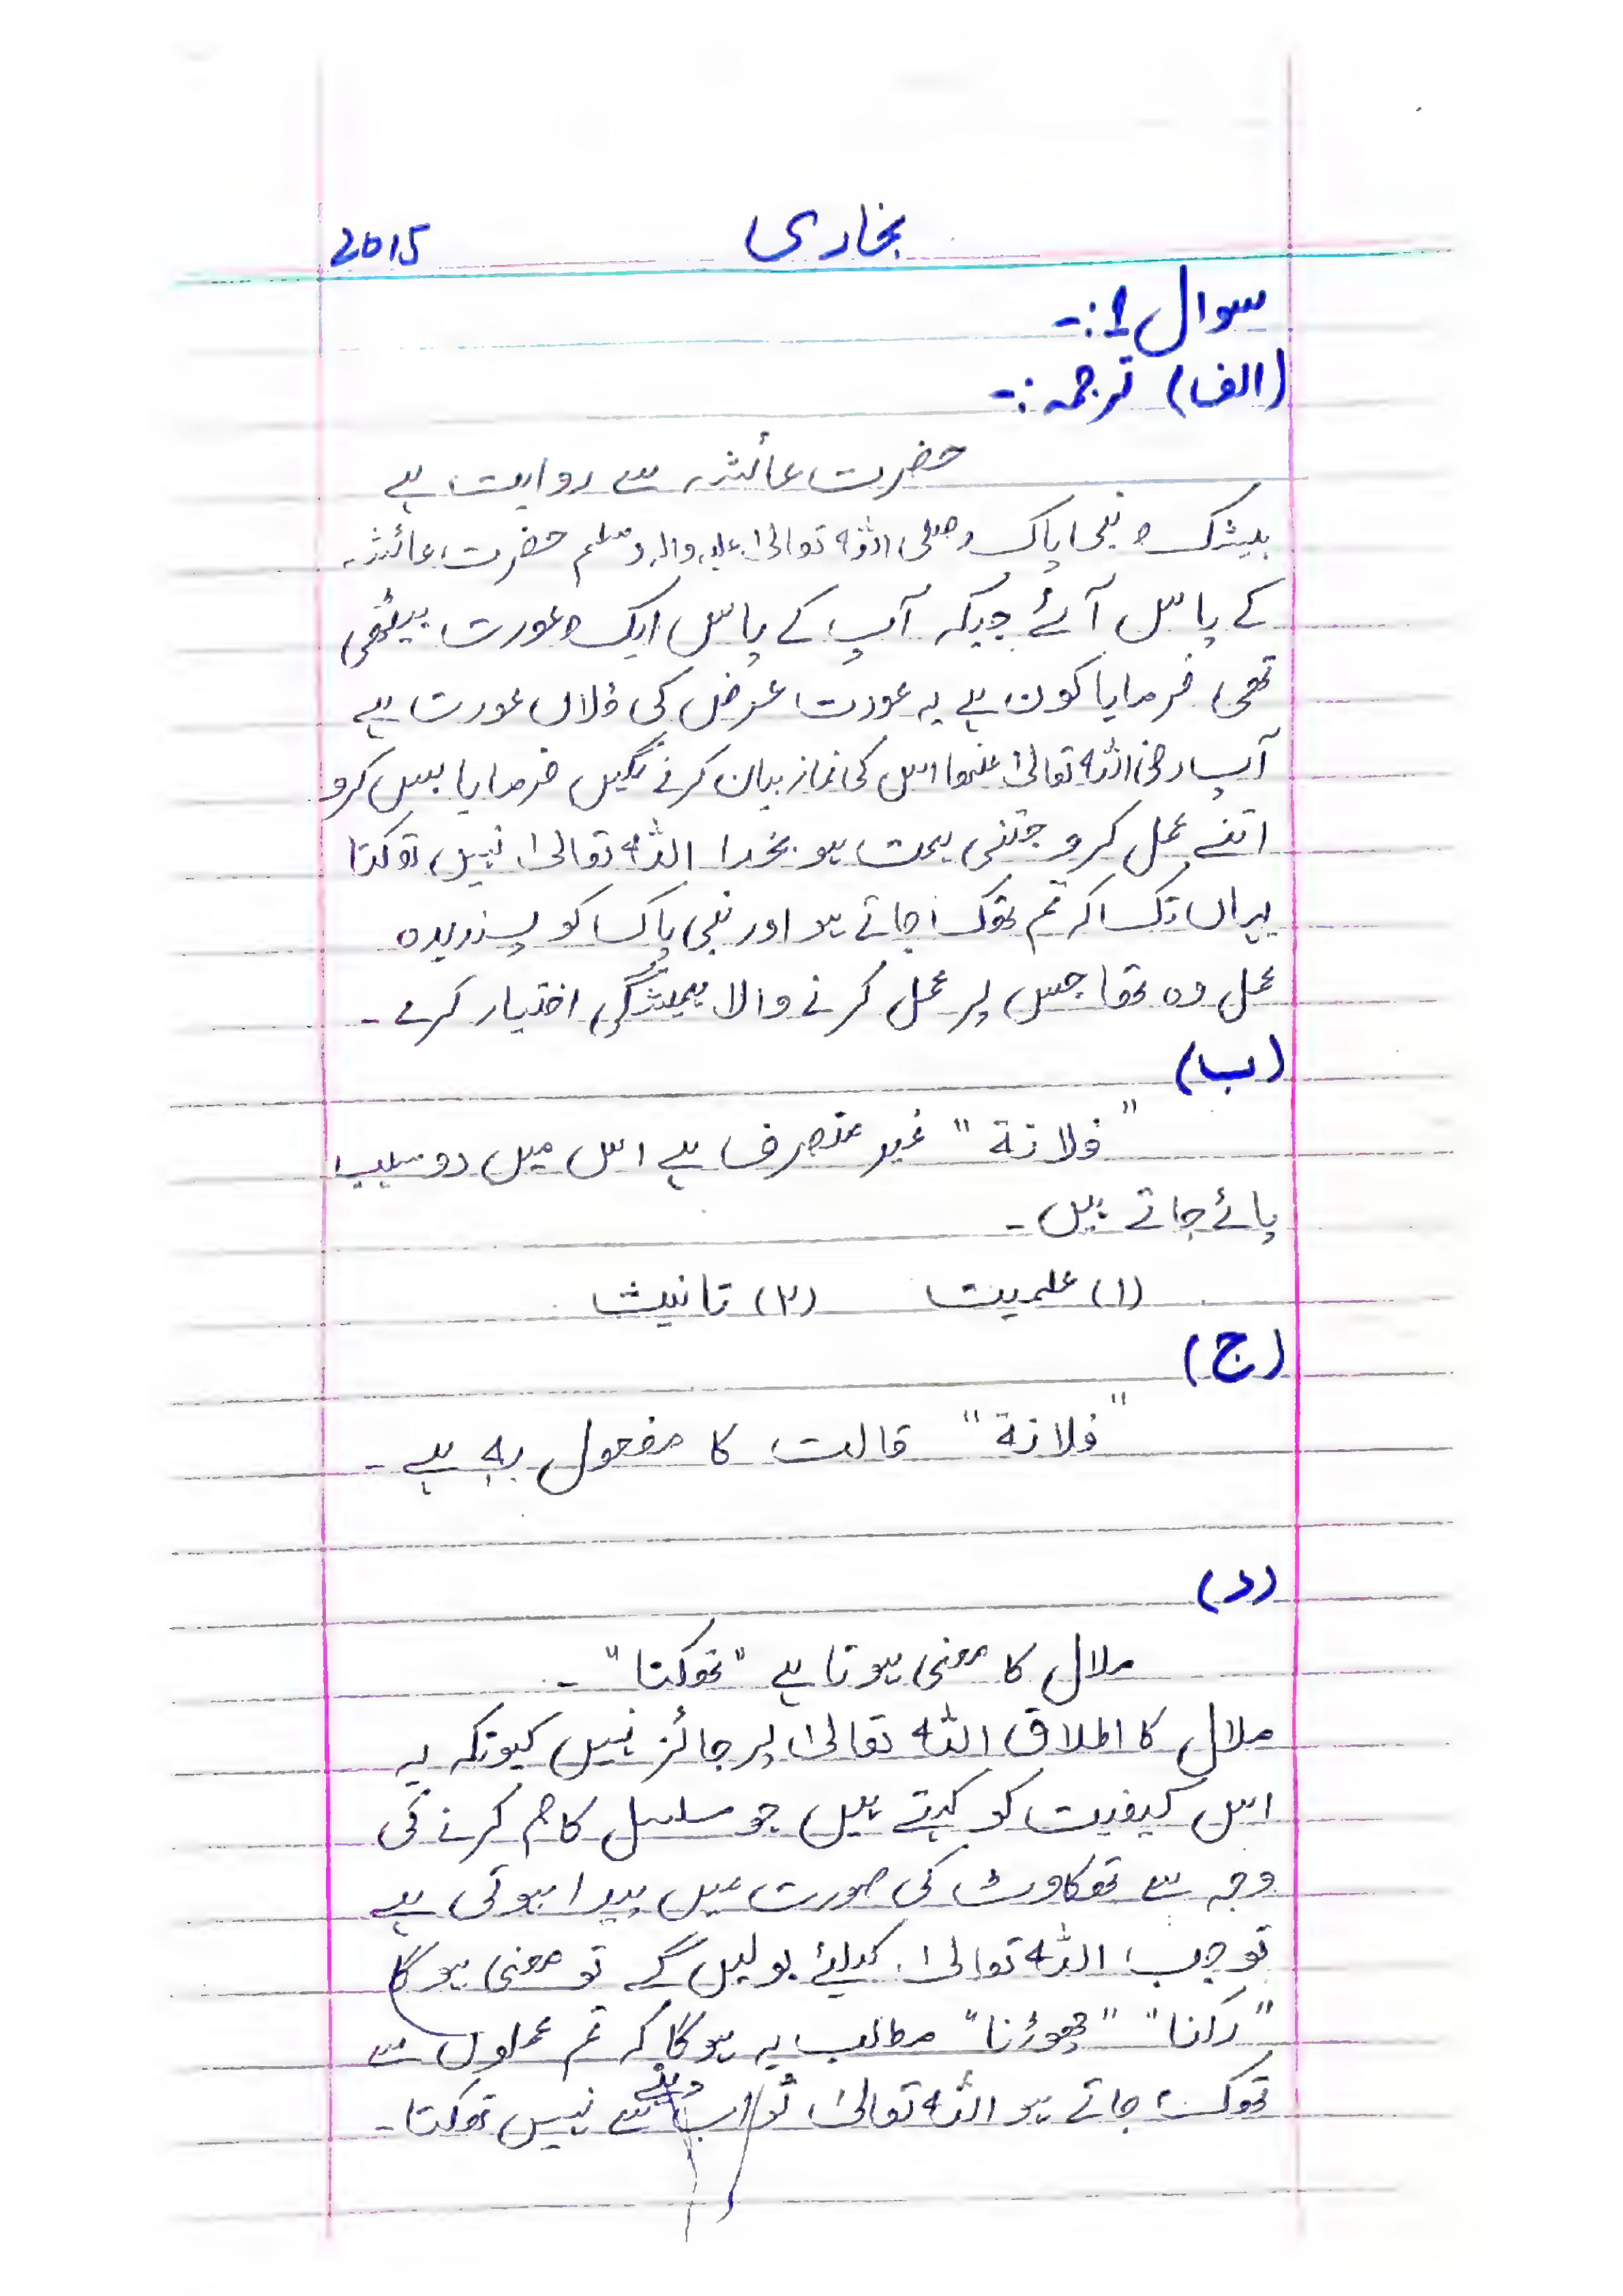 بخاری 2015
سوال 1:-
(الف) ترجمہ:-
حضرت عائشہ سے روایت ہے
بیشک نبی پاک صلی اللہ تعالیٰ علیہ والہ وسلم حضرت عائشہ
کے پاس آئے جبکہ آپ کے پاس ایک عورت بیٹھی
تھی فرمایا کون ہے یہ عورت عرض کی فلاں عورت ہے
آپ رضی اللہ تعالیٰ عنہا اس کی نماز بیان کرنے لگیں فرمایا بس کرو
اتنے عمل کرو جتنی ہمت ہو بخدا اللہ تعالیٰ نہیں تھکتا
یہاں تک کہ تم تھک جاتے ہو اور نبی پاک کو پسندیدہ
عمل وہ تھا جس پر عمل کرنے والا ہمیشگی اختیار کرے -
(ب)
"فلانة" غیر منصرف ہے اس میں دو سبب
پائے جاتے ہیں -
(۱) علمیت (۲) تانیث
(ج)
"فلانة" قالت کا مفعول بہ ہے -
(د)
ملال کا معنی ہوتا ہے "تھکنا" -
ملال کا اطلاق اللہ تعالیٰ پر جائز نہیں کیونکہ یہ
اس کیفیت کو کہتے ہیں جو مسلسل کام کرنے کی
وجہ سے تھکاوٹ کی صورت میں پیدا ہوتی ہے
تو جب اللہ تعالیٰ کیلئے بولیں گے تو معنی ہوگا
"رکنا" "چھوڑنا" مطلب یہ ہوگا کہ تم عملوں سے
تھک جاتے ہو اللہ تعالیٰ ثواب دینے سے نہیں تھکتا -